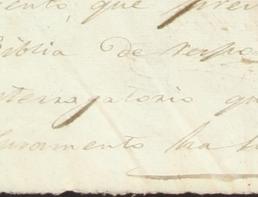 ento, que prev
Biblia de respo
nterrogatorio qu
uramento ha s